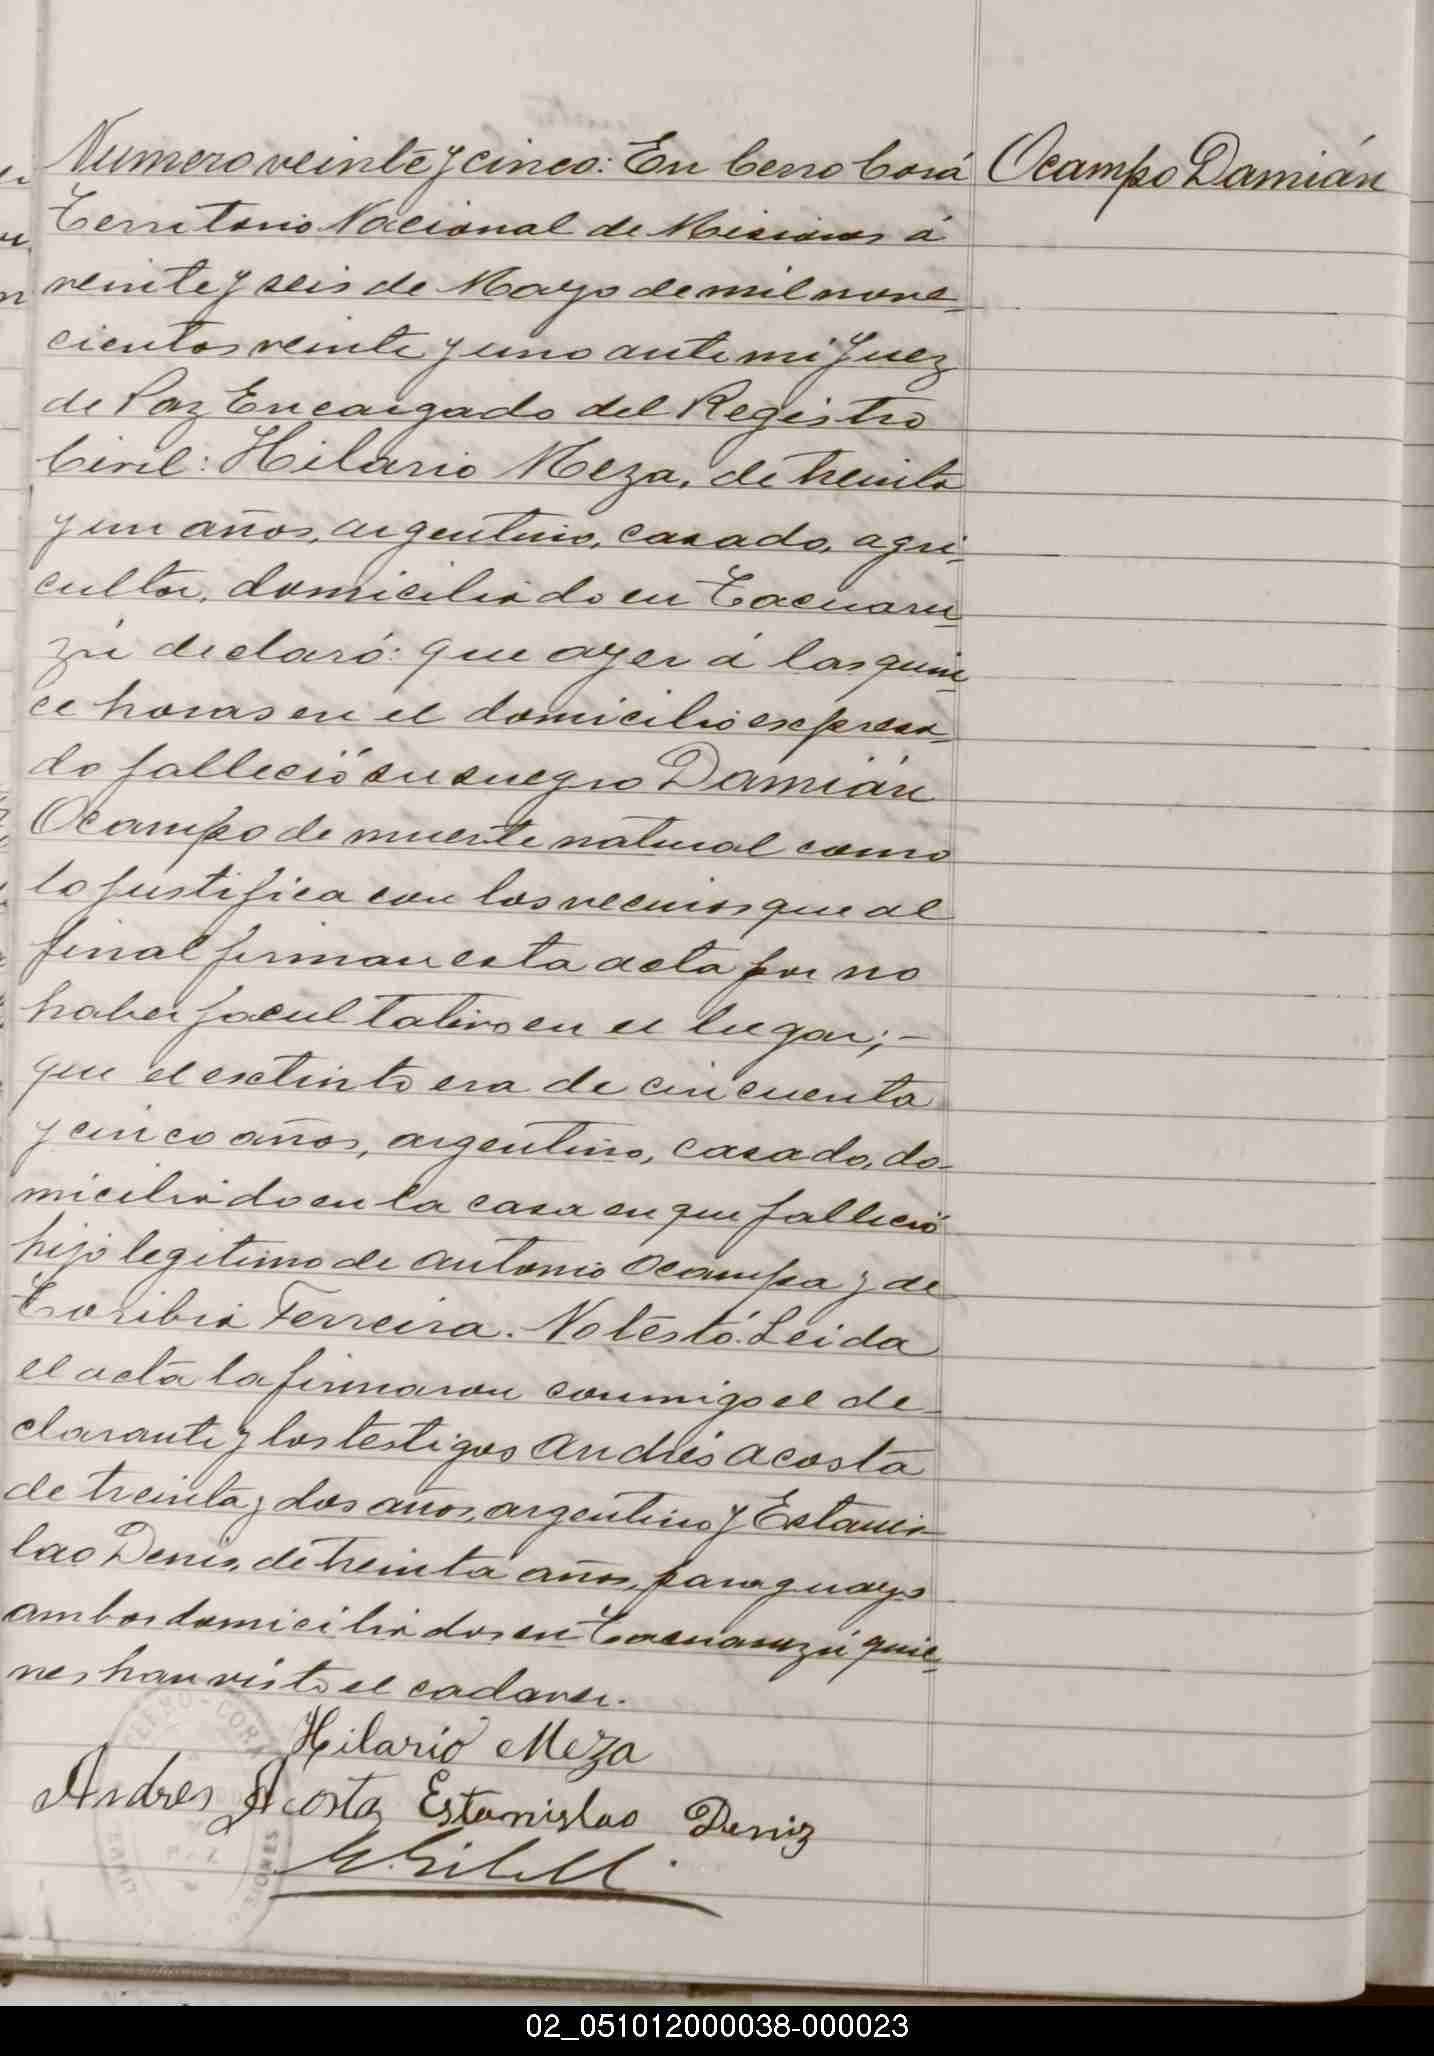 Numero veinte y cinco: En Cerro Corá
Ocampo Damián
Territorio Nacional de Misiones á
veinte y seis de Mayo de mil nove-
cientos veinte y uno ante mi Juez
de Paz Encargado del Registro
Civil: Hilario Meza, de treinta
y un años, argentino, casado, agri-
cultor, domiciliado en Tacuaru-
zú declaró: que ayer á las quin-
ce horas en el domicilio expresa-
do falleció su suegro Damián
Ocampo de muerte natural como
lo justifica con los vecinos que al
final firman esta acta por no
haber facultativo en el lugar; -
que el extinto era de cincuenta
y cinco años, argentino, casado, do-
miciliado en la casa en que falleció
hijo legitimo de Antonio Ocampo y de
Toribia Ferreira. No testó. Leida
el acta la firmaron conmigo el de-
clarante y los testigos Andrés Acosta
de treinta y dos años, argentino y Estanis-
lao Denis, de treinta años, paraguayo
ambos domiciliados en Tacuaruzú quie-
nes han visto el cadaver.
Hilario Meza
Andres Acosta Estanislao Deniz
CERRO-CORA
MISIONES
02_051012000038-000023